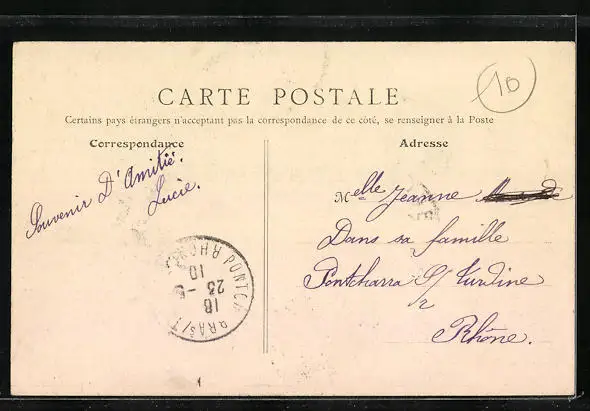 10
CARTE POSTALE
Certains pays étrangers n'acceptant pas la correspondance de ce côté, se renseigner à la Poste
Correspondance
Souvenir D'Amitié.
Lucie.
Adresse
Melle Jeanne
Dans sa famille
Pontcharra S/ Turdine
Rhône.
PONTCHARRA
RHONE
18
23 - 5
10